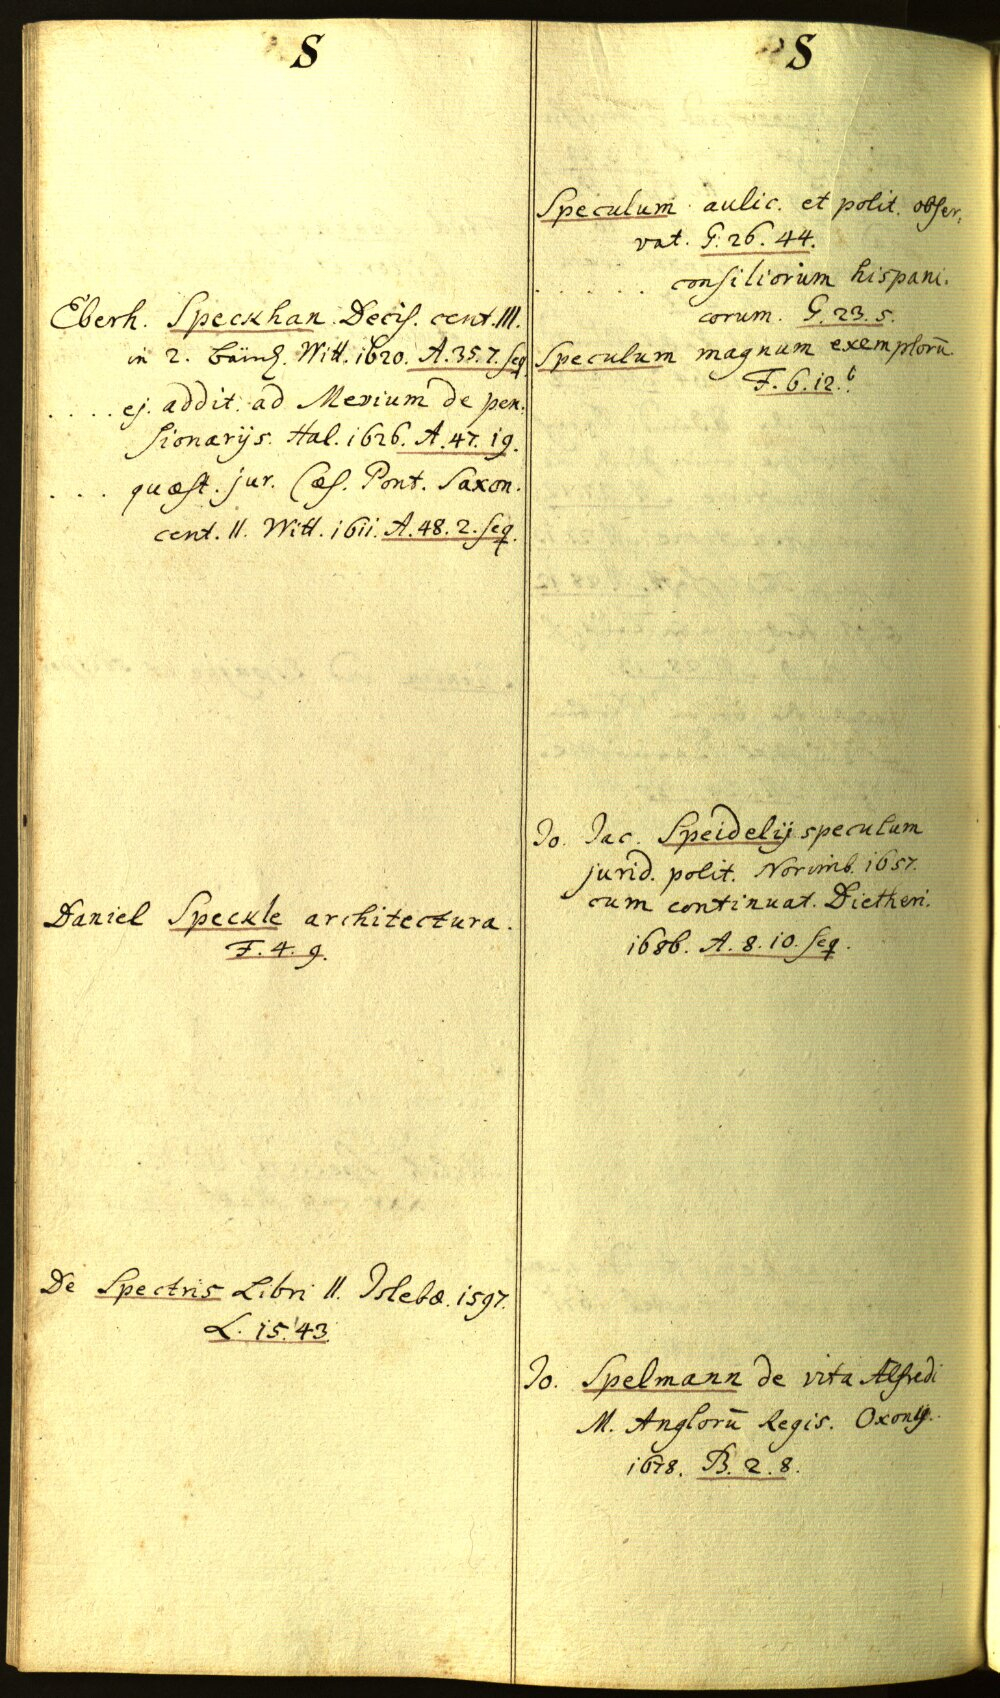 S
Eberh. Speckhan Decis. cent. III.
in 2. bänd. Witt. 1620. A. 35. 7. seq
. . . . ej. addit. ad Mevium de pen,
sionarijs. Hal. 1626. A. 47. 19.
. . . quæst. jur. Cæs. Pont. Saxon.
cent. II. Witt. 1611. A. 48. 2. seq.
Daniel Speckle architectura.
F. 4. 9.
De Spectris Libri II. Islebæ. 1597.
L. 15. 43
S
Speculum aulic. et polit. obser,
vat. G. 26. 44.
. . . . . . consiliorum hispani,
corum. G. 23. 5.
Speculum magnum exemplorū.
F. 6. 12. b
Jo. Jac. Speidelij speculum
jurid. polit. Norimb. 1657.
cum continuat. Dietheri.
1686. A. 8. 10. seq.
Jo. Spelmann de vita Alfredi
M. Anglorū Regis. Oxonij.
1678. B. 2. 8.